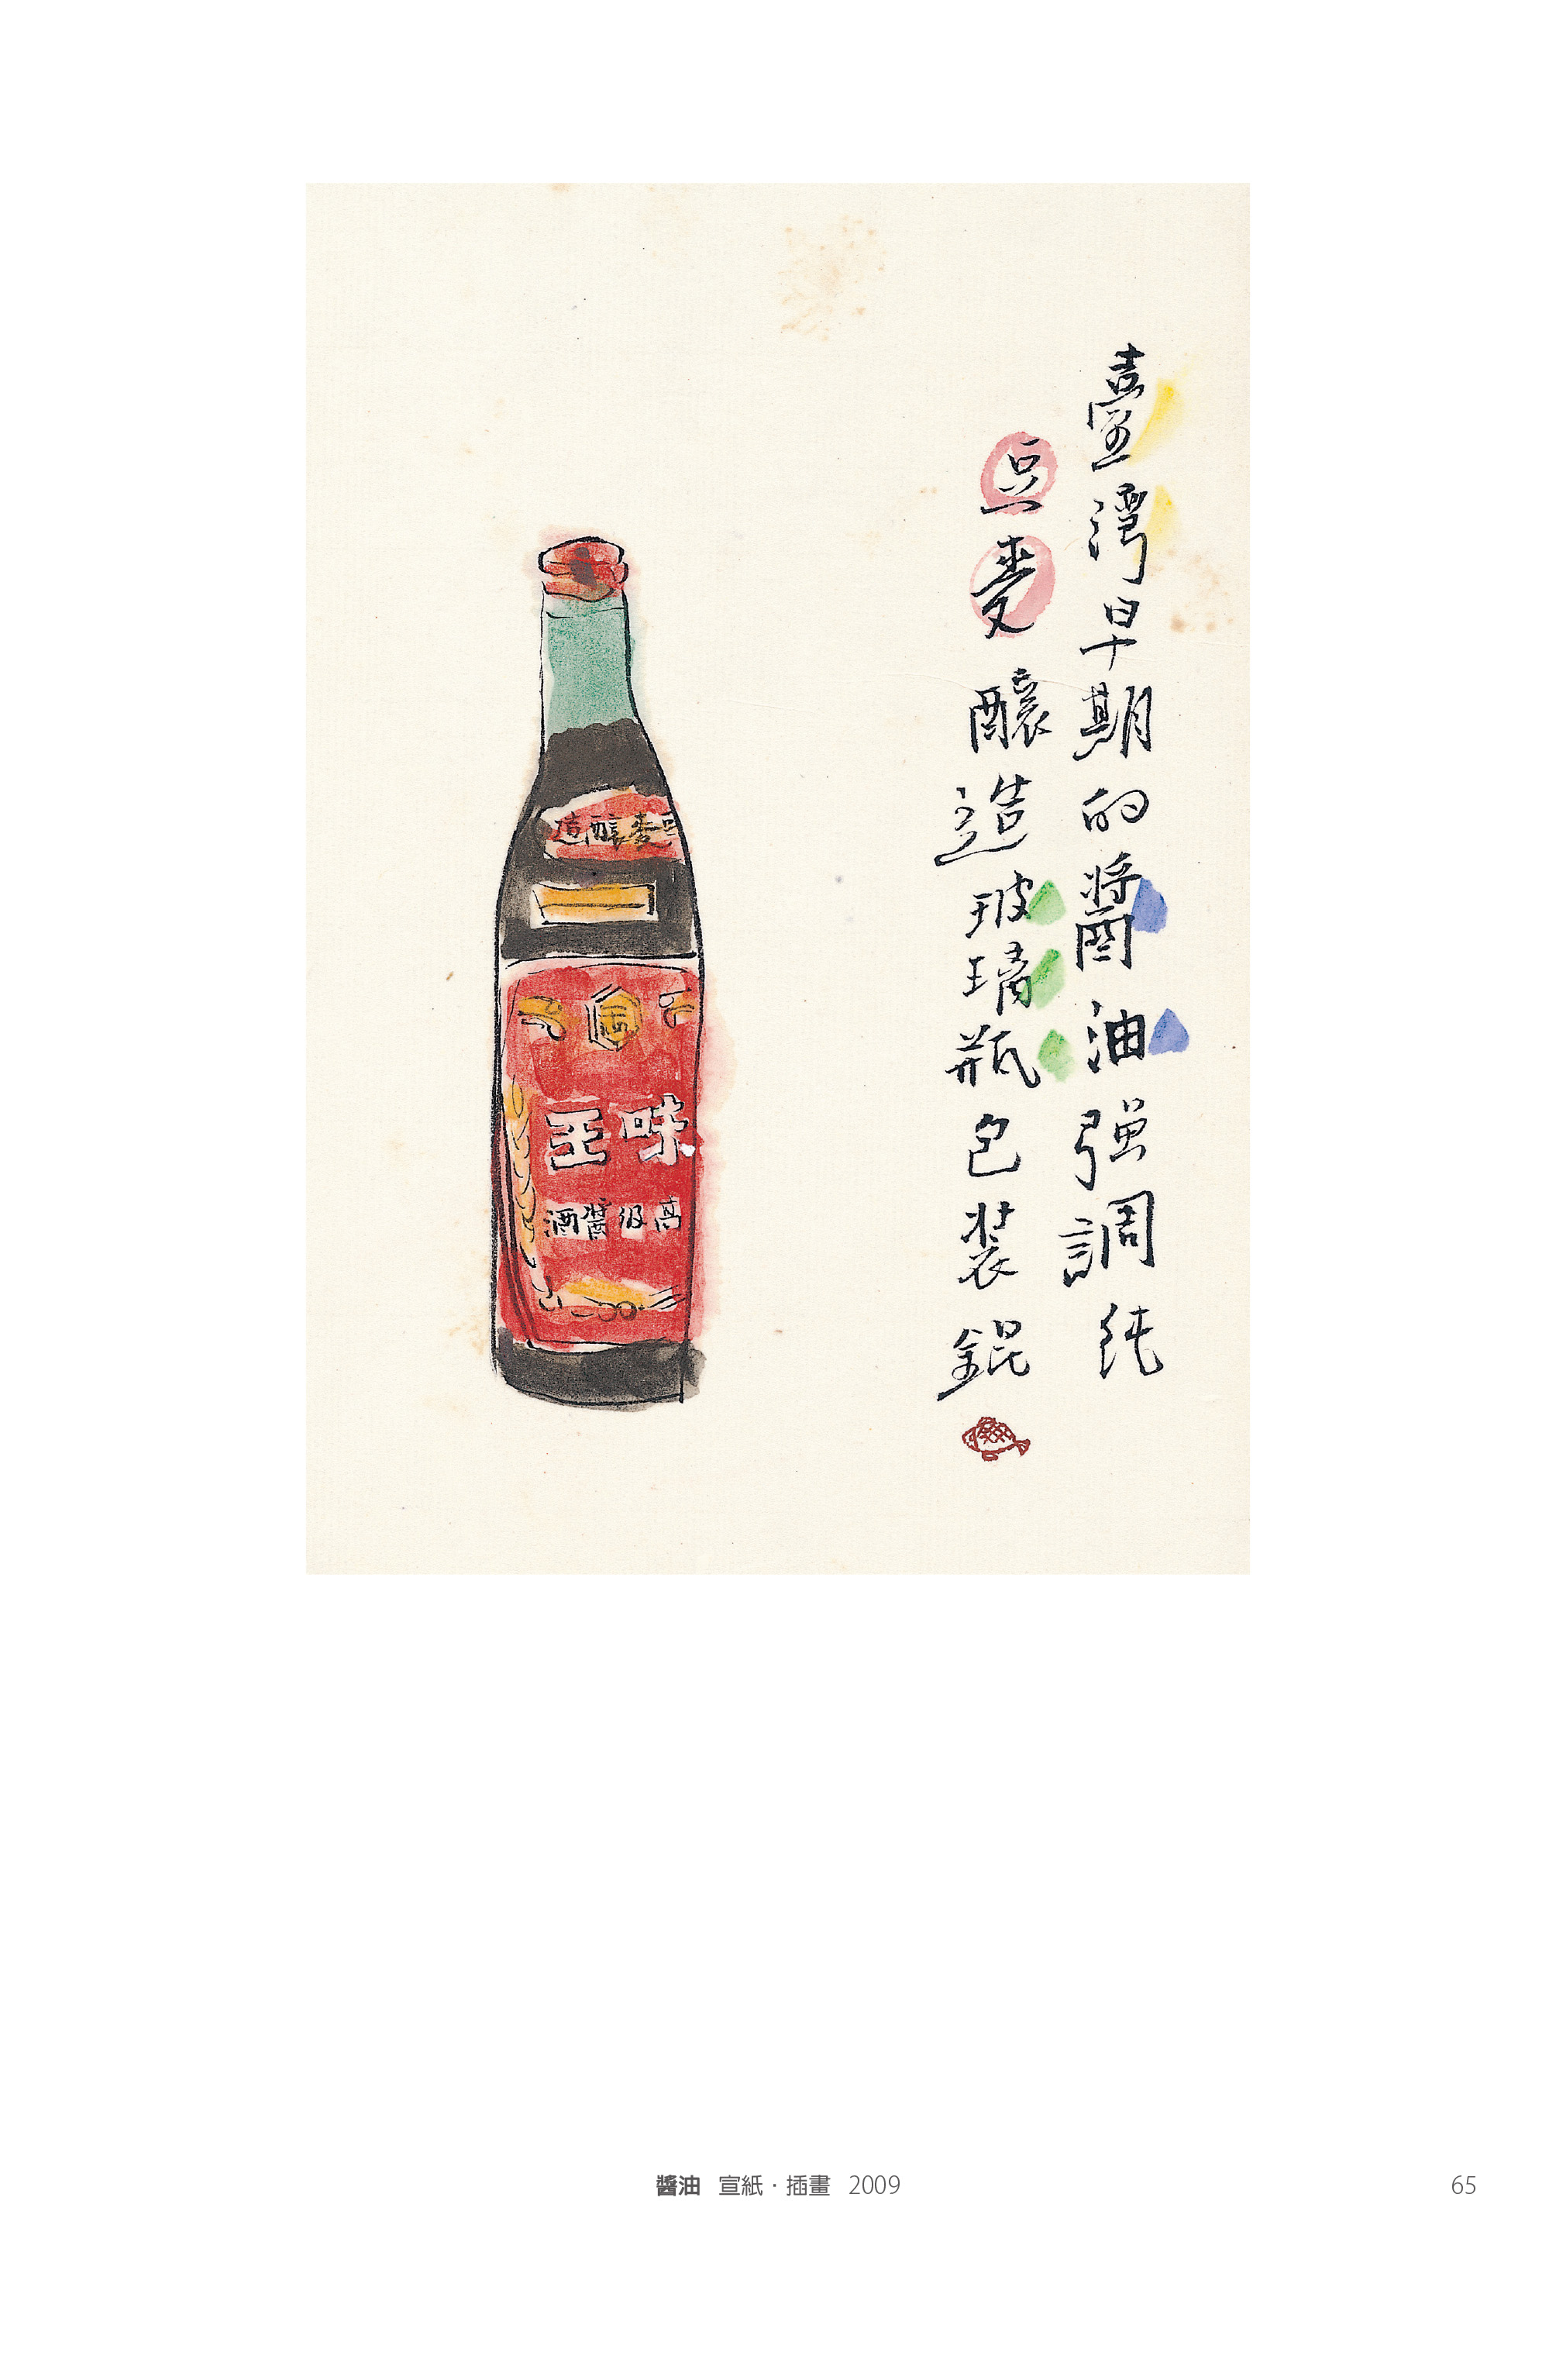 臺灣早期的醬油强調純
豆麥釀造玻璃瓶包裝錕
豆麥釀造
味王
高級醬油
醬油 宣紙·插畫 2009
65